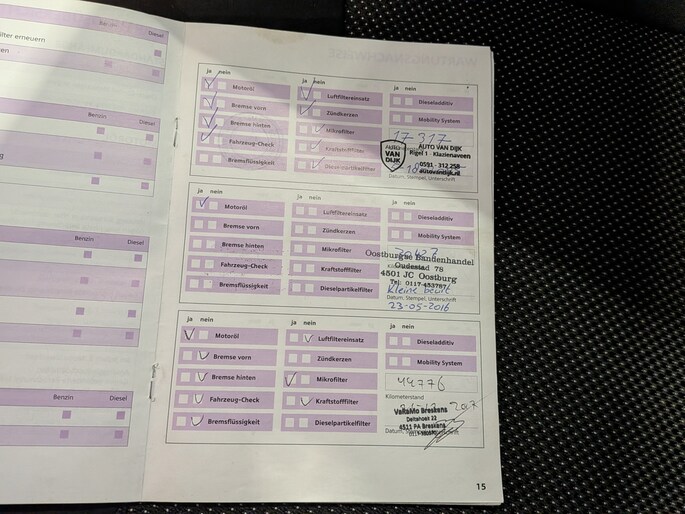 Diesel
lter erneuern
ren
Benzin
Diesel
g
Benzin
Diesel
Benzin
Diesel
WARTUNGSNACHWEISE
ja nein
ja nein
ja nein
Motoröl
Luftfiltereinsatz
Dieseladditiv
Bremse vorn
Zündkerzen
Mobility System
Bremse hinten
Mikrofilter
17-317
Fahrzeug-Check
Kraftstofffilter
Bremsflüssigkeit
Dieselpartikelfilter
VAN
DIJK
AUTO VAN DIJK
Rigel 1 - Klazienaveen
0591 - 312 258
autovandijk.nl
Datum, Stempel, Unterschrift
ja nein
ja nein
ja nein
Motoröl
Luftfiltereinsatz
Dieseladditiv
Bremse vorn
Zündkerzen
Mobility System
Bremse hinten
Mikrofilter
Fahrzeug-Check
Kraftstofffilter
Bremsflüssigkeit
Dieselpartikelfilter
Oostburgse Bandenhandel
Oudestad 78
4501 JC Oostburg
Tel: 0117-453787
Kleine beurt
Datum, Stempel, Unterschrift
23-05-2016
ja nein
ja nein
ja nein
Motoröl
Luftfiltereinsatz
Dieseladditiv
Bremse vorn
Zündkerzen
Mobility System
Bremse hinten
Mikrofilter
44776
Fahrzeug-Check
Kraftstofffilter
Kilometerstand
Bremsflüssigkeit
Dieselpartikelfilter
VaRaMo Breskens
Deltahoek 22
4511 PA Breskens
15